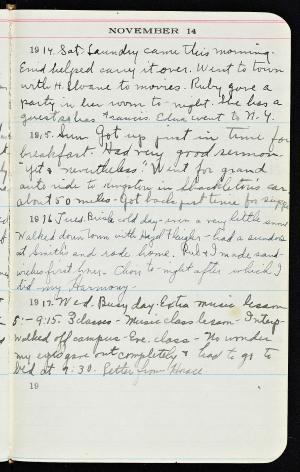 NOVEMBER 14
1914. Sat. Laundry came this morning.
Enid helped carry it over. Went to town
with H. Sloane to movies. Ruby gave a
party in her room to-night. She has a
guest as has Francis. Edna went to N.Y.
1915. Sun. Got up just in time for
breakfast. Had very good sermon.
"Yet" & "nevertheless." Went for grand
auto ride to Kingston in Shackletons' car
about 50 miles. Got back just time for supp
1916 Tues. Brisk cold day - even a very little snow
Walked downtown with Hazel - had a sundae
at Smith's and rode home. Rut & I made sand-
wiches first hour. Choir to-night after which I
did my Harmony.
1917. Wed. Busy day. Extra music lesson
8 - 9:15. 3 classes - Music class lesson - Interp-
Walked off campus - Eve. class - No wonder
my eyes gave out completely & had to go to
bed at 9:30. Letter from Horace.
19